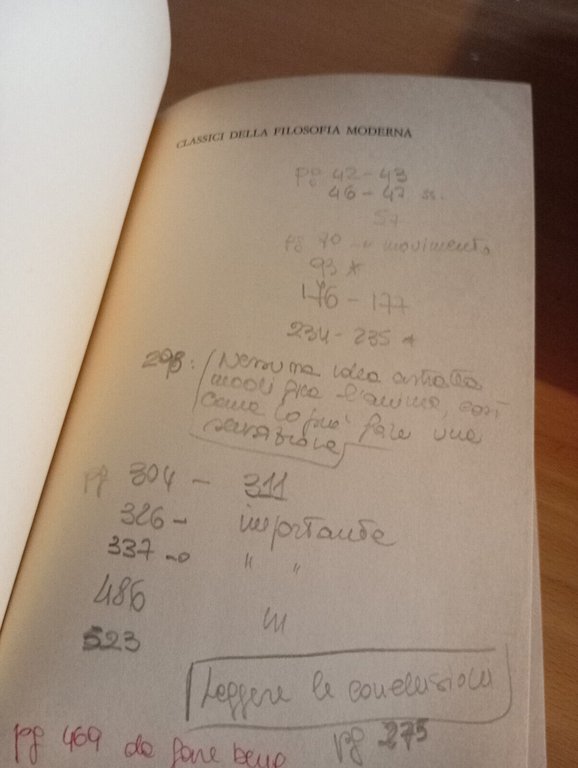 CLASSICI DELLA FILOSOFIA MODERNA
pg 42 - 43
46 - 47 ss.
57
pg 70 movimento
93 *
176 - 177
234 - 235 *
298: Nessuna idea astratta
modifica l'anima, così
come lo può fare una
sensazione
pg 304 - 311
326 - importante
337 - " "
486
523
Leggere le conclusioni
pg 469 da fare bene pg 275